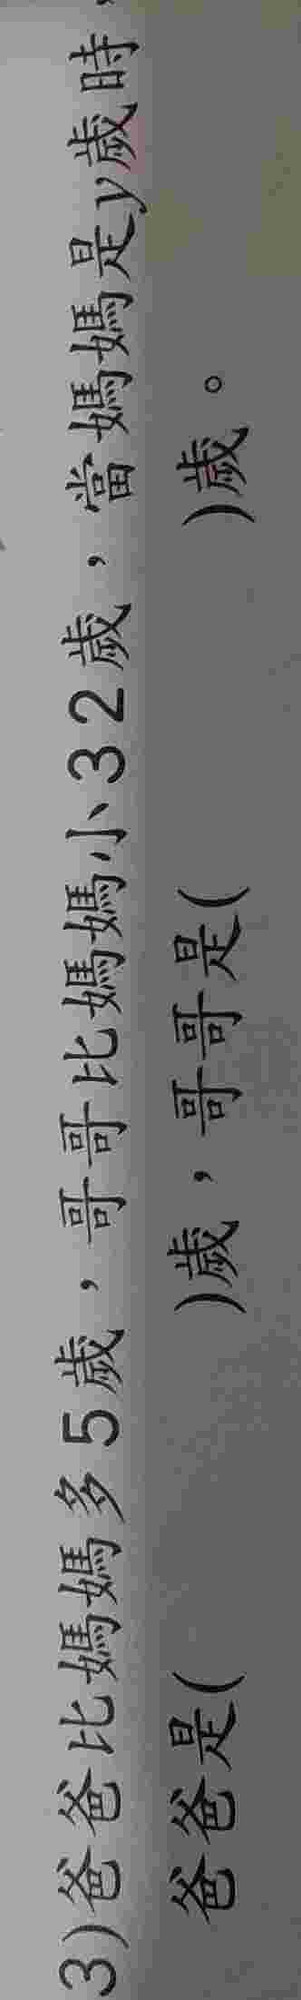 3)爸爸比媽媽多5歲，哥哥比媽媽小32歲，當媽媽是y歲時，
爸爸是(　　　)歲，哥哥是(　　　)歲。